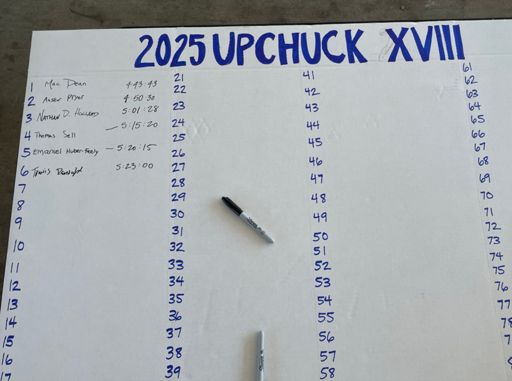 2025 UPCHUCK XVIII
1 Mac Dean 4:43:43
2 Asher Pryor 4:50:30
3 Nathan D. Holland 5:01:28
4 Thomas Sell — 5:15:20
5 Emanuel — 5:20:15
6 Travis 5:23:00
7
8
9
10
11
12
13
14
15
16
17
21
22
23
24
25
26
27
28
29
30
31
32
33
34
35
36
37
38
39
41
42
43
44
45
46
47
48
49
50
51
52
53
54
55
56
57
58
61
62
63
64
65
66
67
68
69
70
71
72
73
74
75
76
77
78